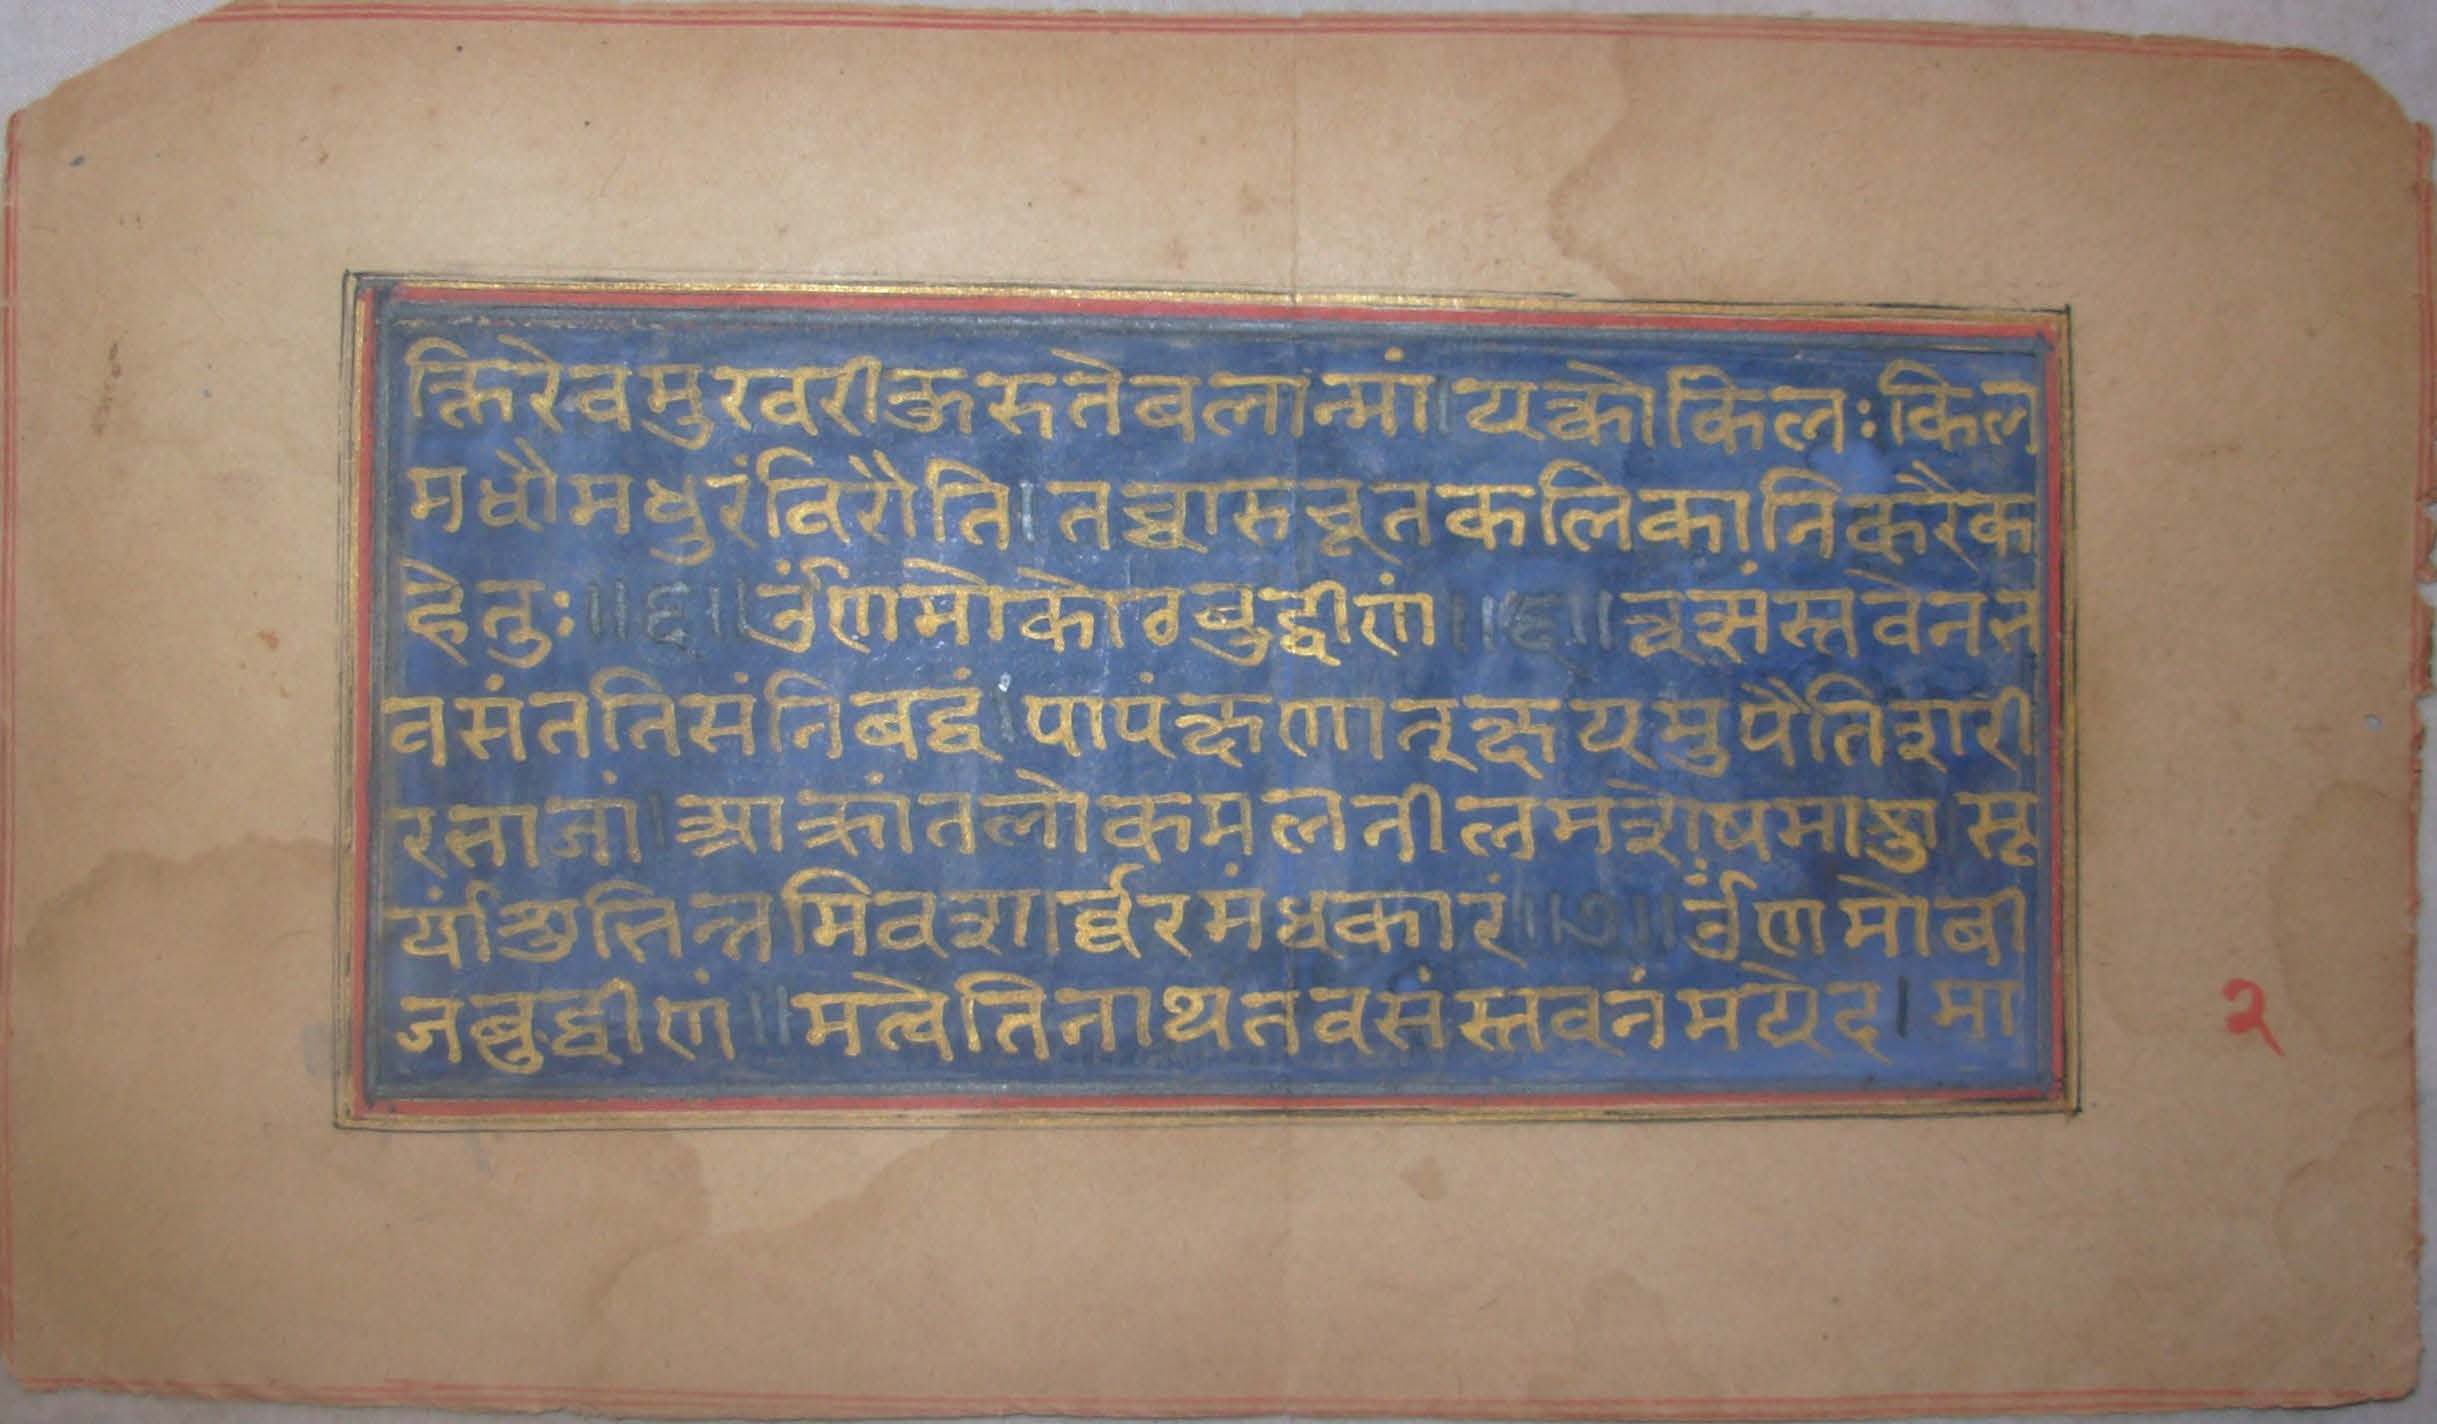 क्तिरेवमुखरीकुरुतेबलान्मां।यत्कोकिलःकिल
मधौमधुरंविरौति।तच्चारुचूतकलिकानिकरैक
हेतुः॥६॥ उँणमोकोठबुद्धीणं॥६॥त्वत्संस्तवेनन
वसंततिसंनिबद्धं।पापंक्षणात्क्षयमुपैतिशरी
रत्नाजां।आक्रांतलोकमलनीलमशेषमाशु।सू
र्यांशुत्तिन्नमिवशार्व्वरमंधकारं॥७॥ उँणमोबी
जबुद्धीणं॥मत्वेतिनाथतवसंस्तवनंमयेद।मा
२